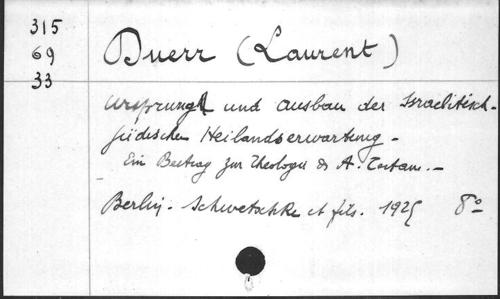 315
69
33
Duerr (Laurent)
Ursprung und Ausbau der Israelitisch-
jüdischen Heilandserwartung -
Ein Beitrag zur Theologie ds A. Testam. -
Berlin. Schwetschke et fils. 1925 8°